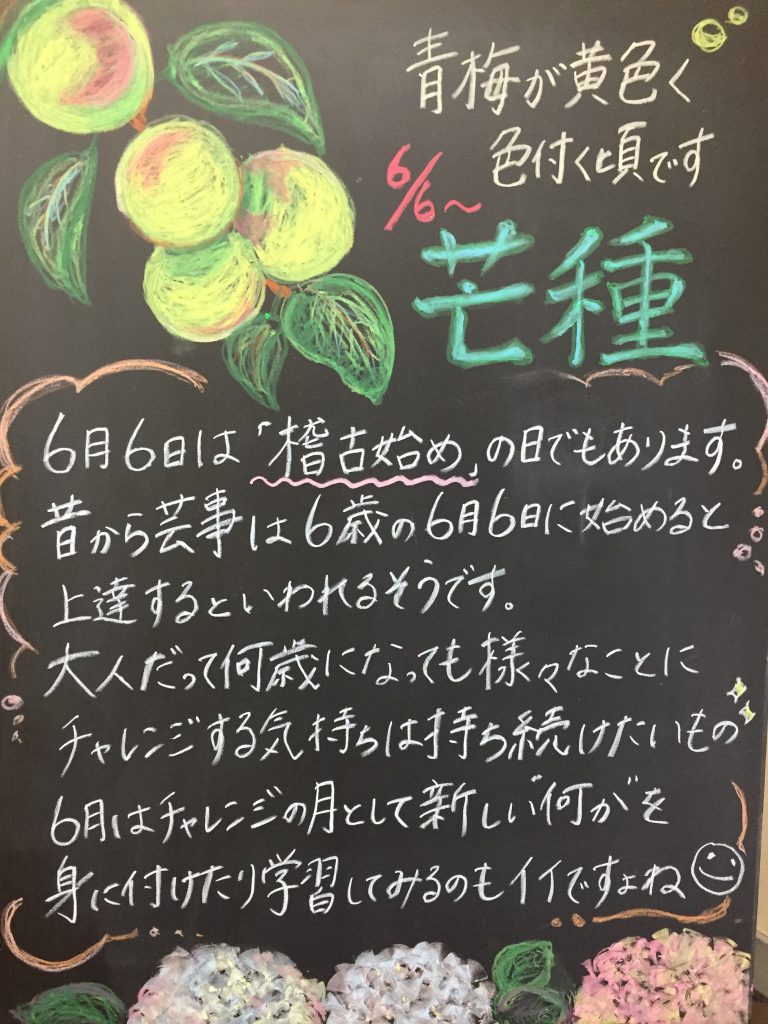 青梅が黄色く
色付く頃です
6/6〜
芒種
6月6日は「稽古始め」の日でもあります。
昔から芸事は6歳の6月6日に始めると
上達するといわれるそうです。
大人だって何歳になっても様々なことに
チャレンジする気持ちは持ち続けたいもの
6月はチャレンジの月として新しい"何か"を
身に付けたり学習してみるのもイイですよね